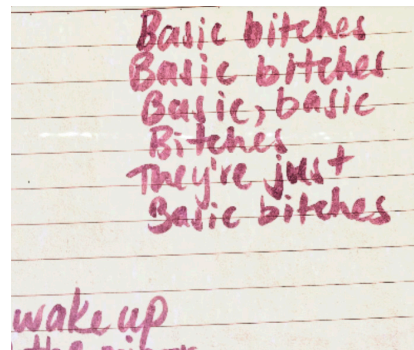 Basic bitches
Basic bitches
Basic, basic
Bitches
They're just
Basic bitches
wake up
the